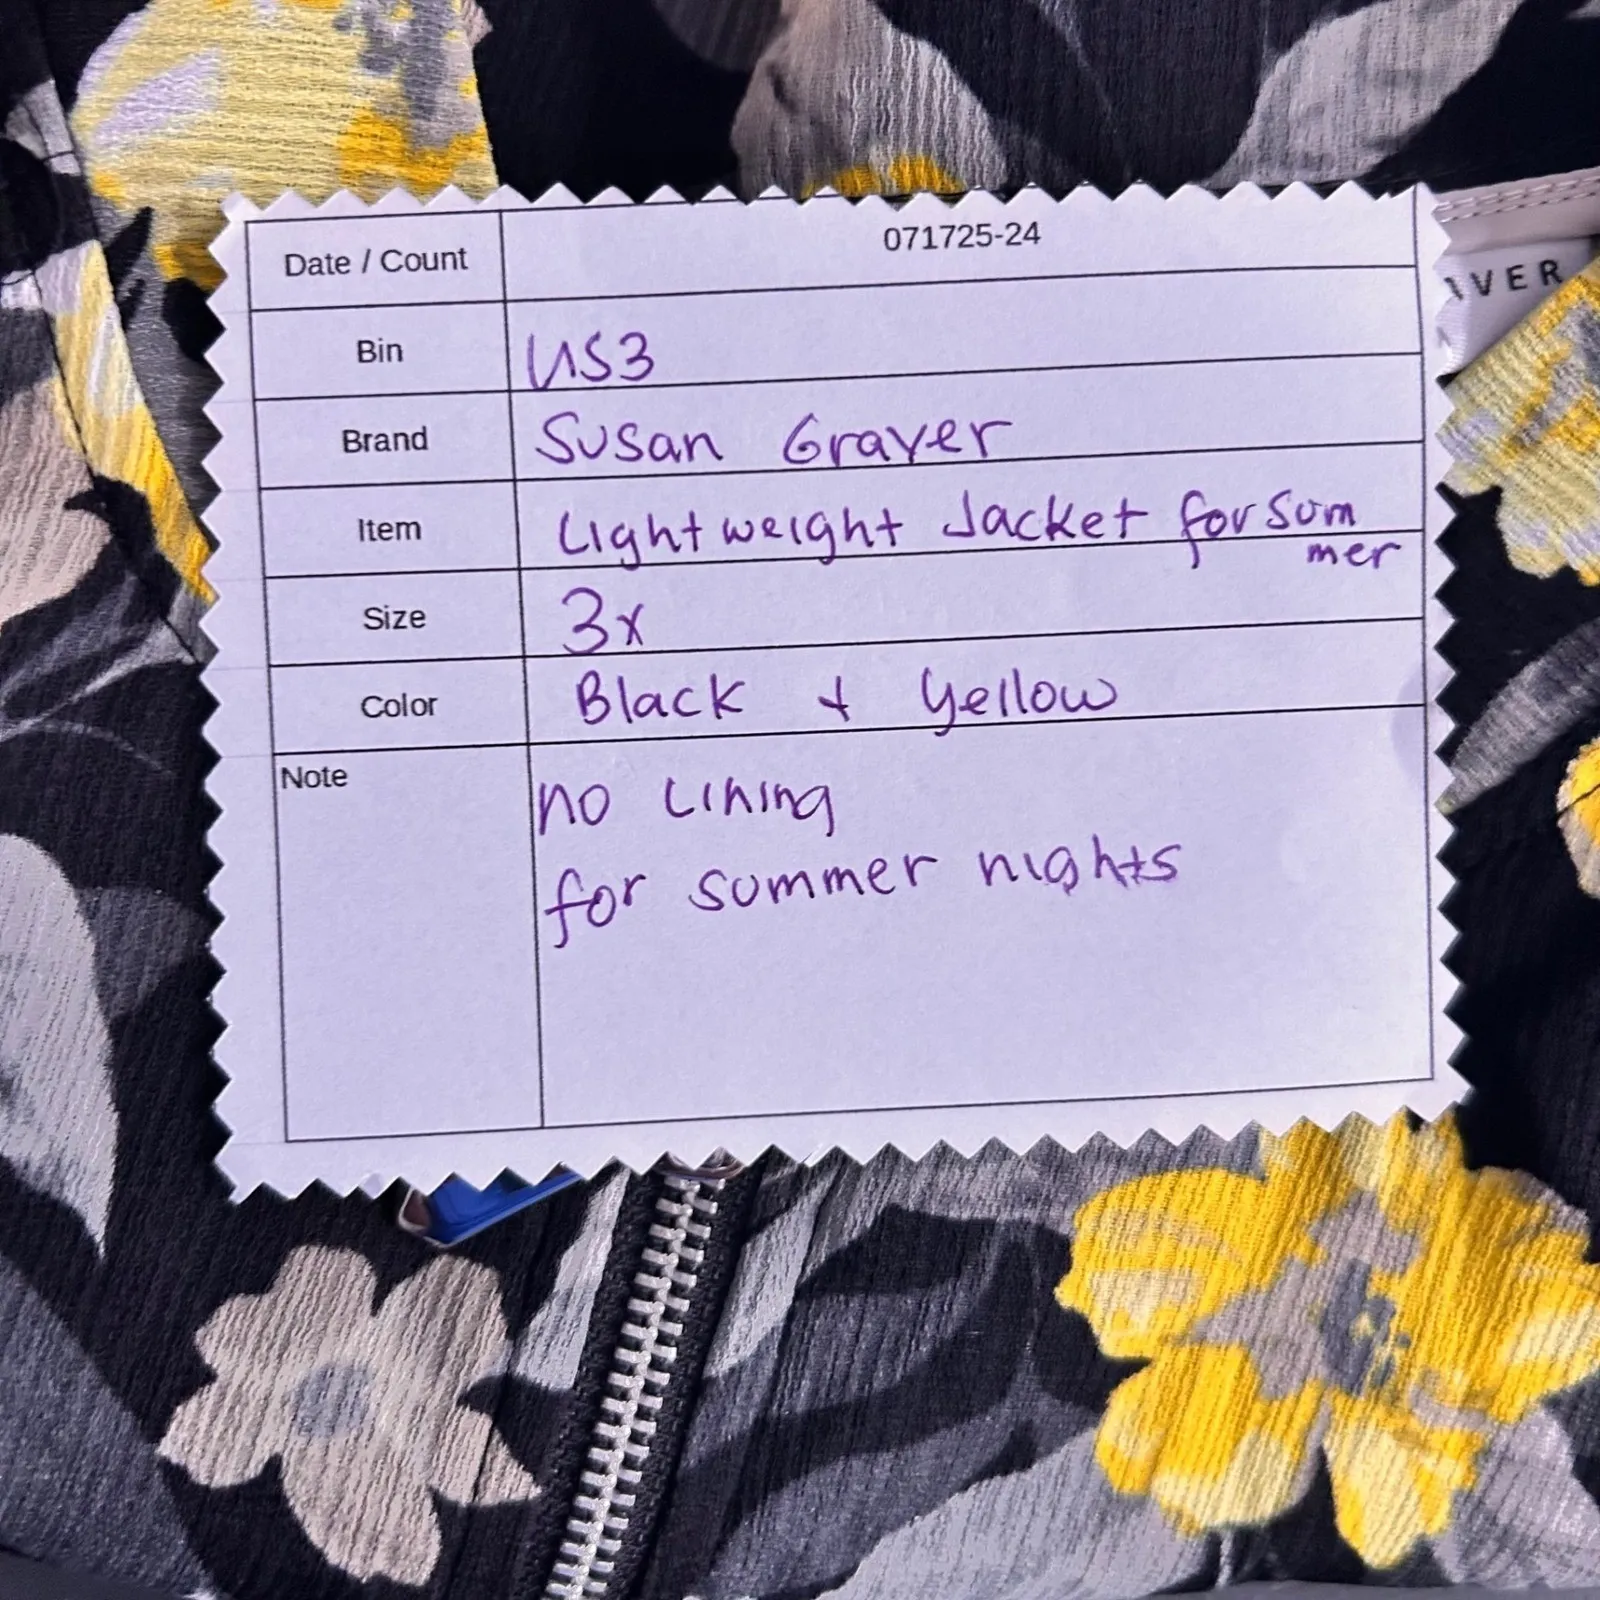 Date / Count 071725-24
Bin US3
Brand Susan Graver
Item Lightweight Jacket for Sum
mer
Size 3x
Color Black + Yellow
Note no Lining
for summer nights
VER